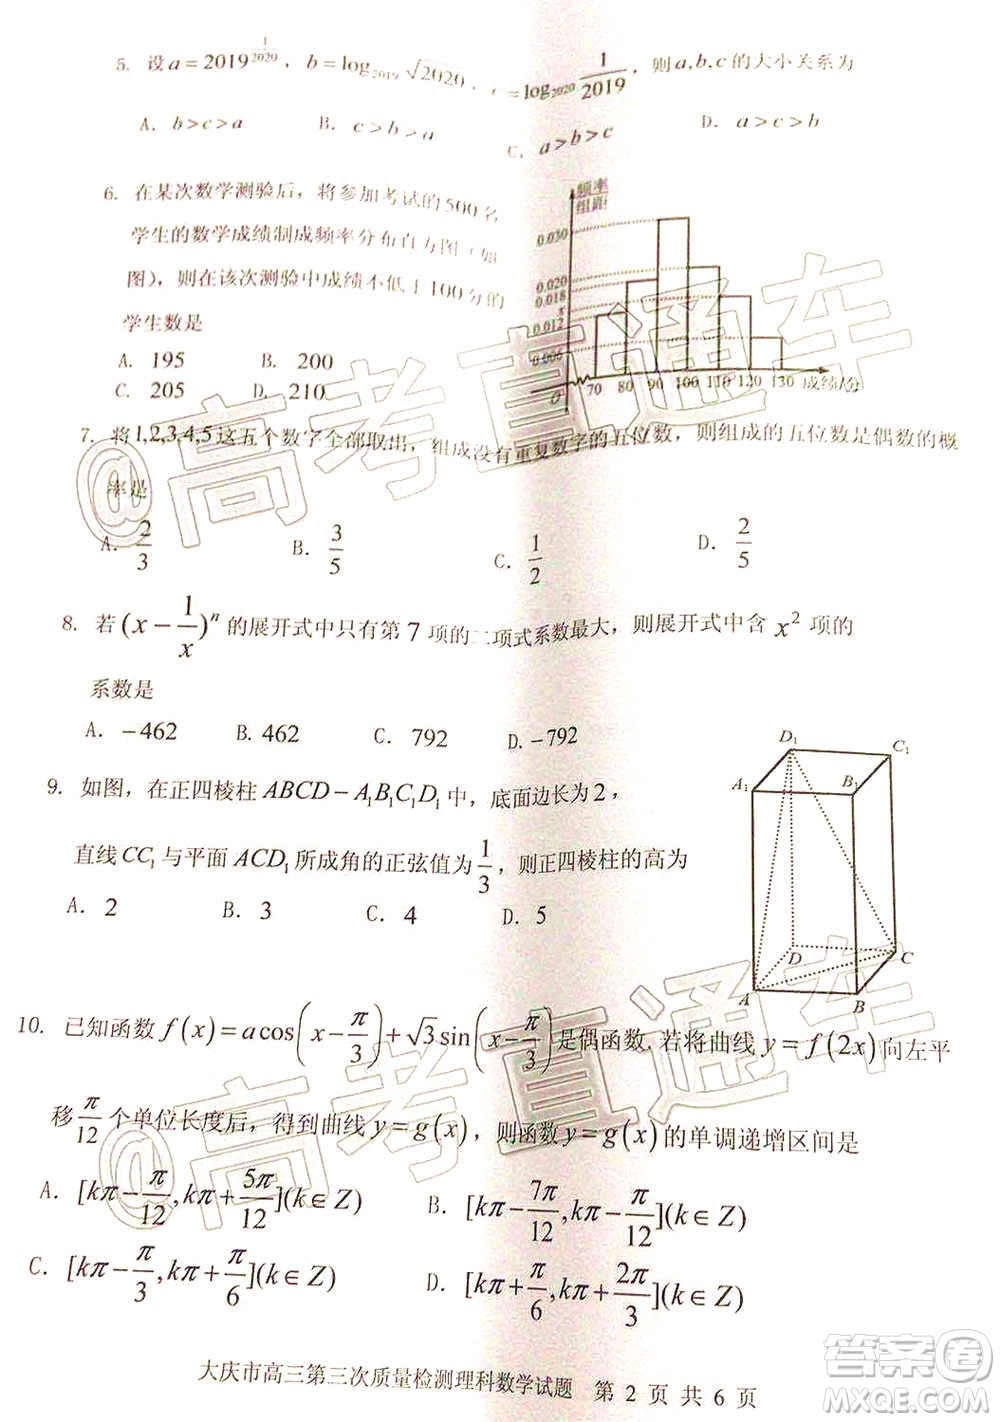 5. 设 a = 2019^{\frac{1}{2020}}, b = log_{2019}\sqrt{2020}, c = log_{2020}\frac{1}{2019}, 则 a,b,c 的大小关系为
A. b>c>a B. c>b>a C. a>b>c D. a>c>b
6. 在某次数学测验后, 将参加考试的500名
学生的数学成绩制成频率分布直方图(如
图), 则在该次测验中成绩不低于100分的
学生数是
A. 195 B. 200
C. 205 D. 210
频率
组距
0.030
0.020
0.018
x
0.012
0.006
O 70 80 90 100 110 120 130 成绩/分
7. 将1,2,3,4,5这五个数字全部取出, 组成没有重复数字的五位数, 则组成的五位数是偶数的概
率是
A. \frac{2}{3} B. \frac{3}{5} C. \frac{1}{2} D. \frac{2}{5}
8. 若 (x-\frac{1}{x})^n 的展开式中只有第7项的二项式系数最大, 则展开式中含 x^2 项的
系数是
A. -462 B. 462 C. 792 D. -792
9. 如图, 在正四棱柱 ABCD-A_1B_1C_1D_1 中, 底面边长为2,
直线 CC_1 与平面 ACD_1 所成角的正弦值为 \frac{1}{3}, 则正四棱柱的高为
A. 2 B. 3 C. 4 D. 5
D_1 C_1
A_1 B_1
D C
A B
10. 已知函数 f(x)=a cos(x-\frac{π}{3})+\sqrt{3}sin(x-\frac{π}{3}) 是偶函数. 若将曲线 y=f(2x) 向左平
移 \frac{π}{12} 个单位长度后, 得到曲线 y=g(x), 则函数 y=g(x) 的单调递增区间是
A. [kπ-\frac{π}{12}, kπ+\frac{5π}{12}](k∈Z) B. [kπ-\frac{7π}{12}, kπ-\frac{π}{12}](k∈Z)
C. [kπ-\frac{π}{3}, kπ+\frac{π}{6}](k∈Z) D. [kπ+\frac{π}{6}, kπ+\frac{2π}{3}](k∈Z)
大庆市高三第三次质量检测理科数学试题 第 2 页 共 6 页
@高考直通车
@高考直通车
答案圈
MXQE.COM